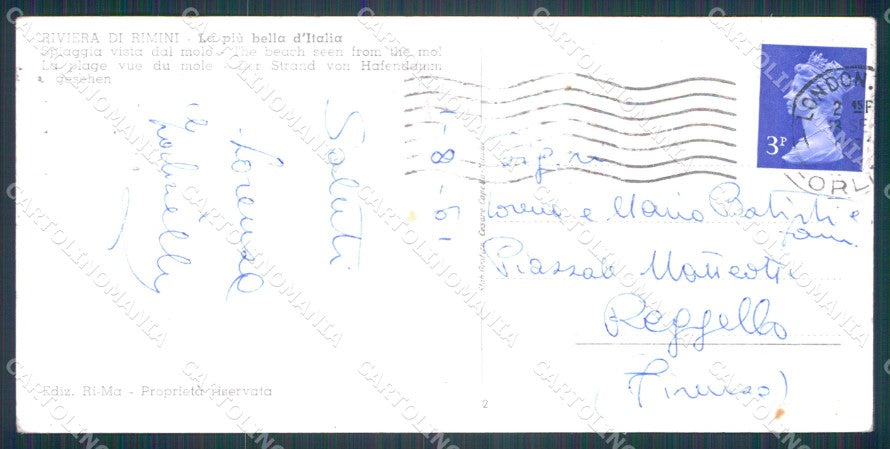 RIVIERA DI RIMINI - La più bella d'Italia
Spiaggia vista dal molo - The beach seen from the mol
La plage vue du mole - Der Strand von Hafendamm
gesehen
Saluti
Lorenzo
e
LONDON
3P
Sig.ri
e Mario Batisti e
fam.
Piazzale Matteotti
Reggello
(Firenze)
Ediz. RI-Ma - Proprietà riservata
2
CARTOLINOMANIA